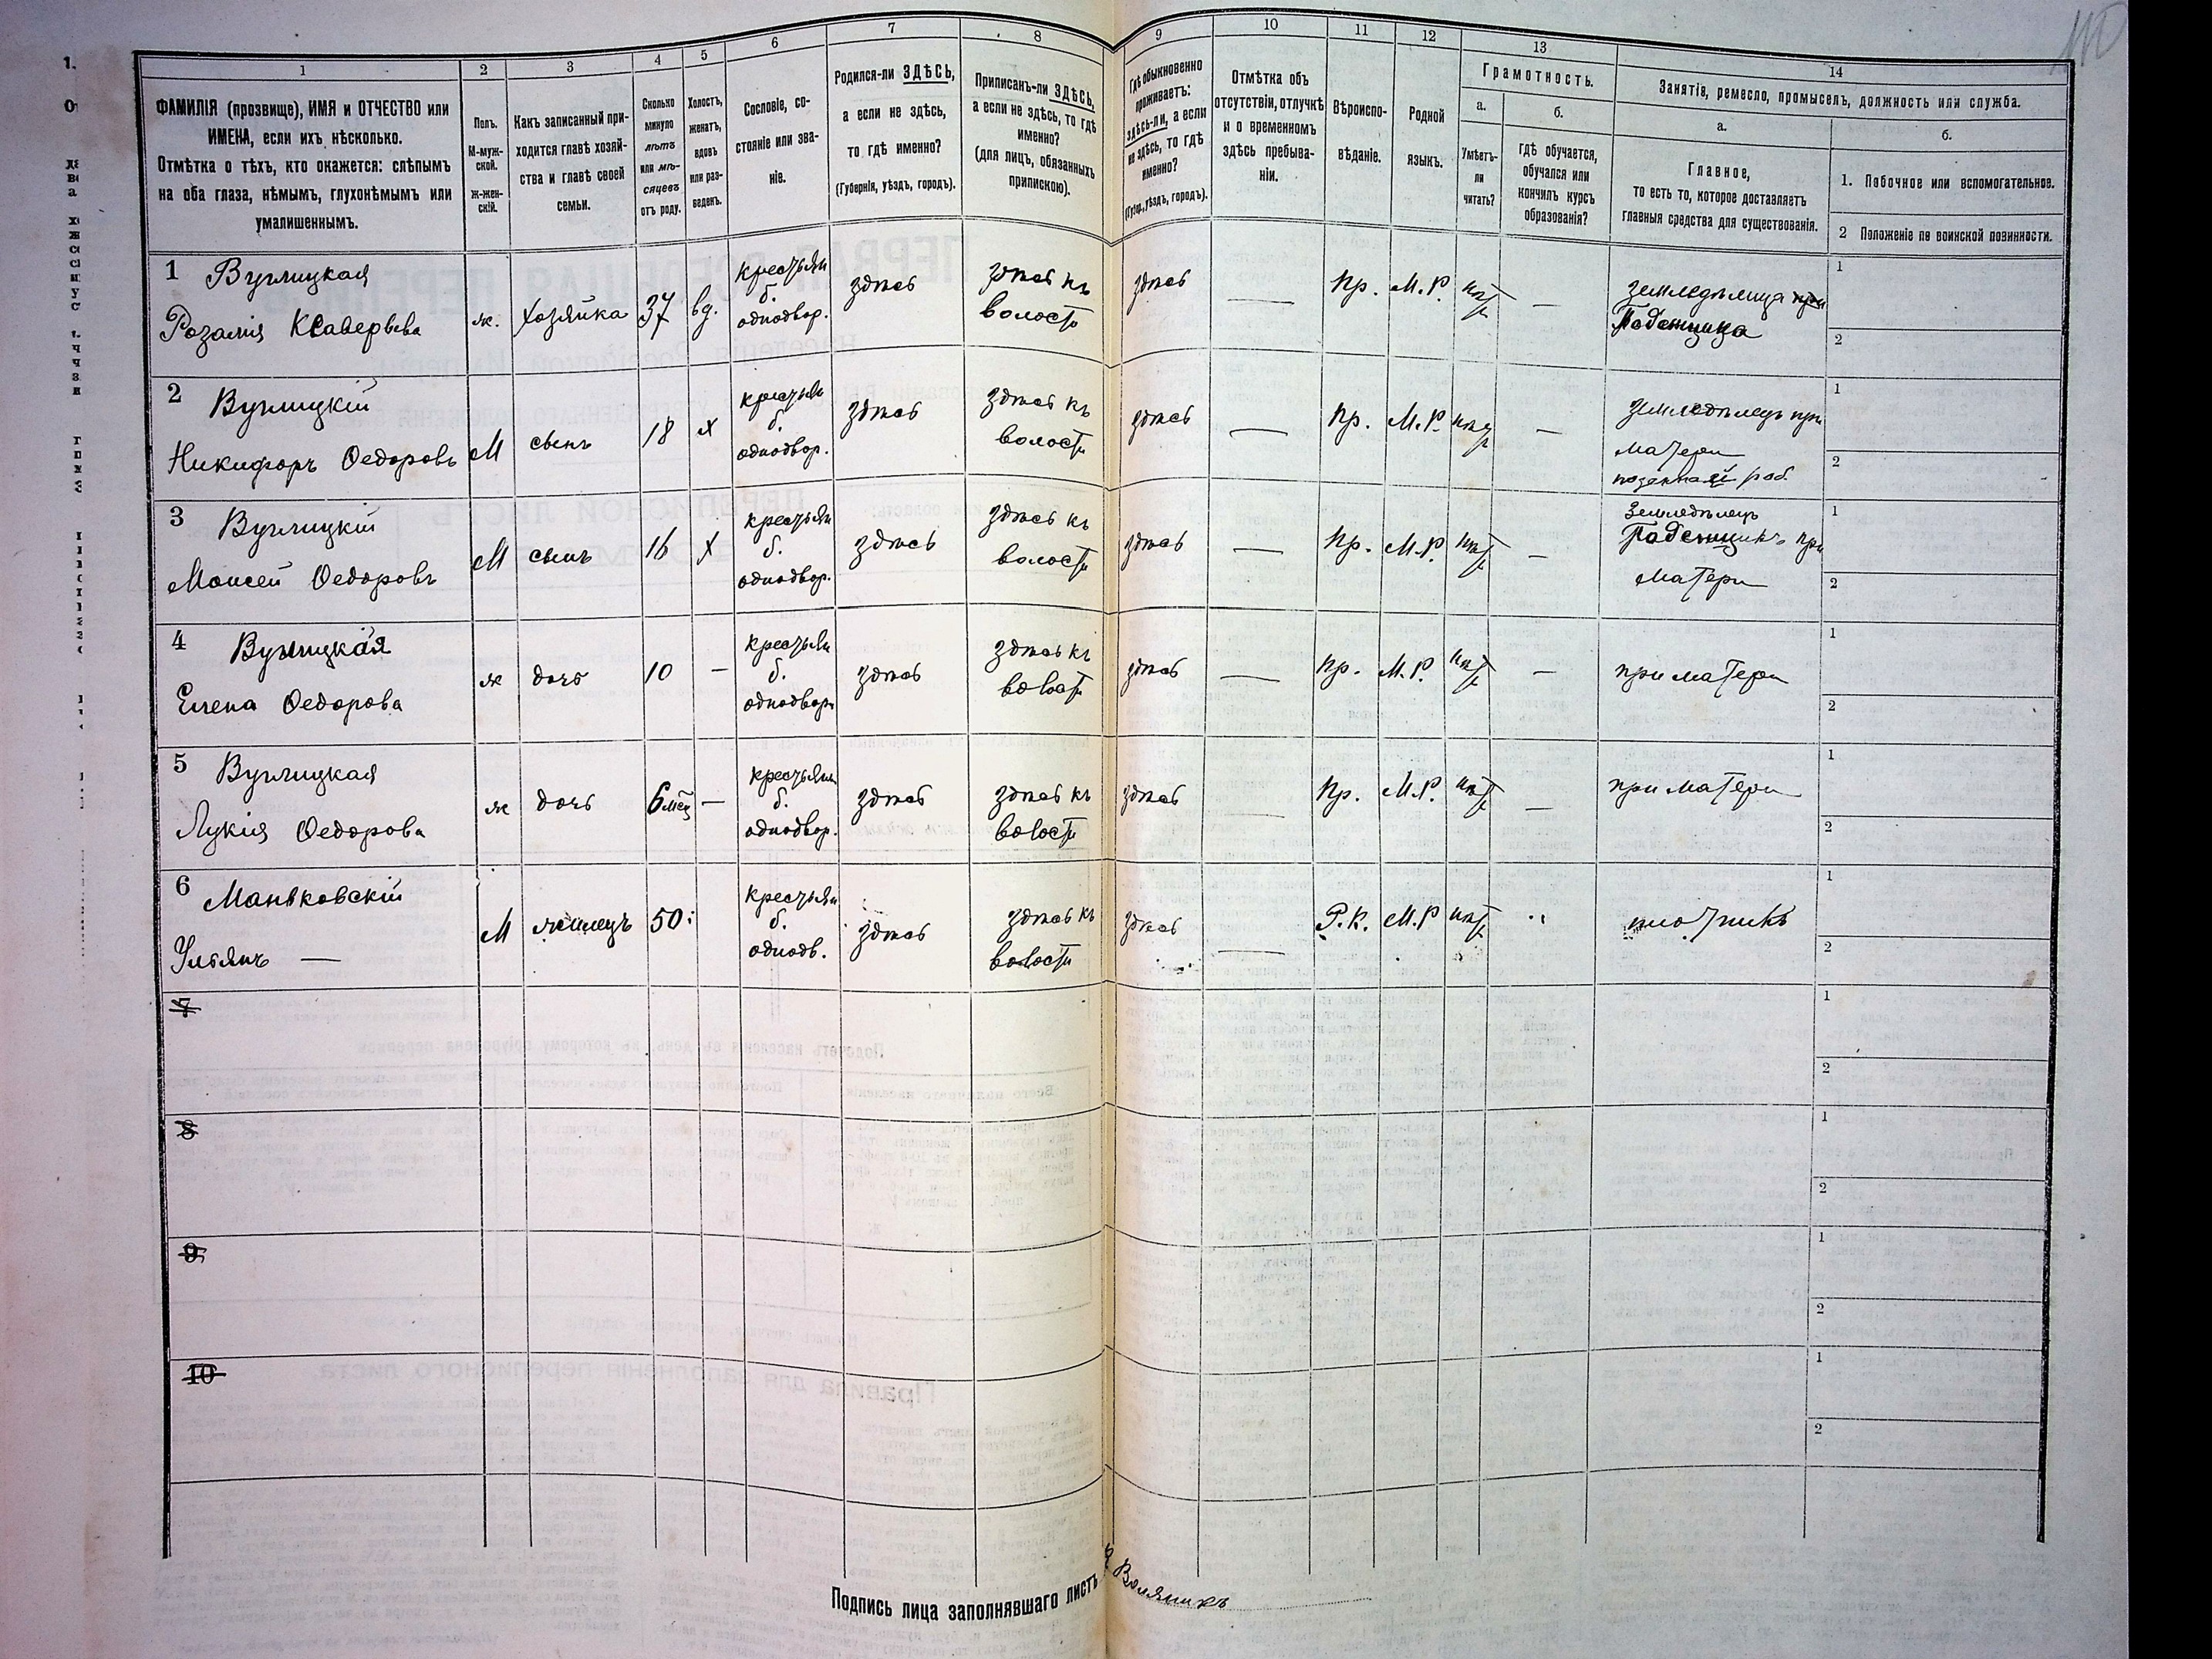 1
2
3
4
5
6
7
8
9
10
11
12
13
14
ФАМИЛІЯ (прозвище), ИМЯ и ОТЧЕСТВО или
ИМЕНА, если ихъ нѣсколько.
Отмѣтка о тѣхъ, кто окажется: слѣпымъ
на оба глаза, нѣмымъ, глухонѣмымъ или
умалишеннымъ.
Полъ.
М-муж-
ской.
Ж-жен-
скій.
Какъ записанный при-
ходится главѣ хозяй-
ства и главѣ своей
семьи.
Сколько
минуло
лѣтъ
или мѣ-
сяцевъ
отъ роду.
Холостъ,
женатъ,
вдовъ
или раз-
веденъ.
Сословіе, со-
стояніе или зва-
ніе.
Родился-ли ЗДѢСЬ,
а если не здѣсь,
то гдѣ именно?
(Губернія, уѣздъ, городъ).
Приписанъ-ли ЗДѢСЬ,
а если не здѣсь, то гдѣ
именно?
(для лицъ, обязанныхъ
припискою).
Гдѣ обыкновенно
проживаетъ:
здѣсь-ли, а если
не здѣсь, то гдѣ
именно?
(Губер., уѣздъ, городъ).
Отмѣтка объ
отсутствіи, отлучкѣ
и о временномъ
здѣсь пребыва-
ніи.
Вѣроиспо-
вѣданіе.
Родной
языкъ.
Грамотность.
а.
Умѣетъ-
ли
читать?
б.
гдѣ обучается,
обучался или
кончилъ курсъ
образованія?
Занятіе, ремесло, промыселъ, должность или служба.
а.
Главное,
то есть то, которое доставляетъ
главныя средства для существованія.
б.
1. Побочное или вспомогательное.
2 Положеніе по воинской повинности.
1 Вуглицкая
Розалія Ксаверьева
ж. хозяйка 37 вд.
крестьян
б.
однодвор.
здѣсь
здѣсь къ
волости
здѣсь — Пр. М.Р. нѣт —
земледѣлица при
Поденщица
1
2
2 Вуглицкій
Никифоръ Ѳедоровъ
М сынъ 18 х
крестьян
б.
однодвор.
здѣсь
здѣсь къ
волости
здѣсь — Пр. М.Р. нѣт —
земледѣлецъ при
матери
1
2
3 Вуглицкій
Моисей Ѳедоровъ
М сынъ 16 х
крестьян
б.
однодвор.
здѣсь
здѣсь къ
волости
здѣсь — Пр. М.Р. нѣт —
Земледѣлецъ
Поденщикъ при
матери
1
2
4 Вуглицкая
Елена Ѳедорова
ж дочь 10 —
крестьян
б.
однодвор.
здѣсь
здѣсь къ
волости
здѣсь — Пр. М.Р. нѣт —
при матери
1
2
5 Вуглицкая
Лукія Ѳедорова
ж дочь 6 мѣс —
крестьян
б.
однодвор.
здѣсь
здѣсь къ
волости
здѣсь — Пр. М.Р. нѣт —
при матери
1
2
6 Маньковскій
Ульянъ —
М жилецъ 50
крестьян
б.
однодв.
здѣсь
здѣсь къ
волости
здѣсь — Р.К. М.Р нѣт
плотникъ
1
2
7
1
2
8
1
2
9
1
2
10
1
2
Подпись лица заполнявшаго листъ